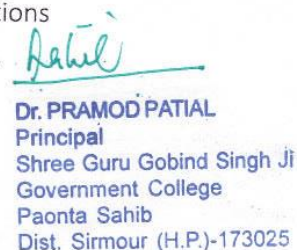 tions
Dr. PRAMOD PATIAL
Principal
Shree Guru Gobind Singh Ji
Government College
Paonta Sahib
Dist. Sirmour (H.P.)-173025